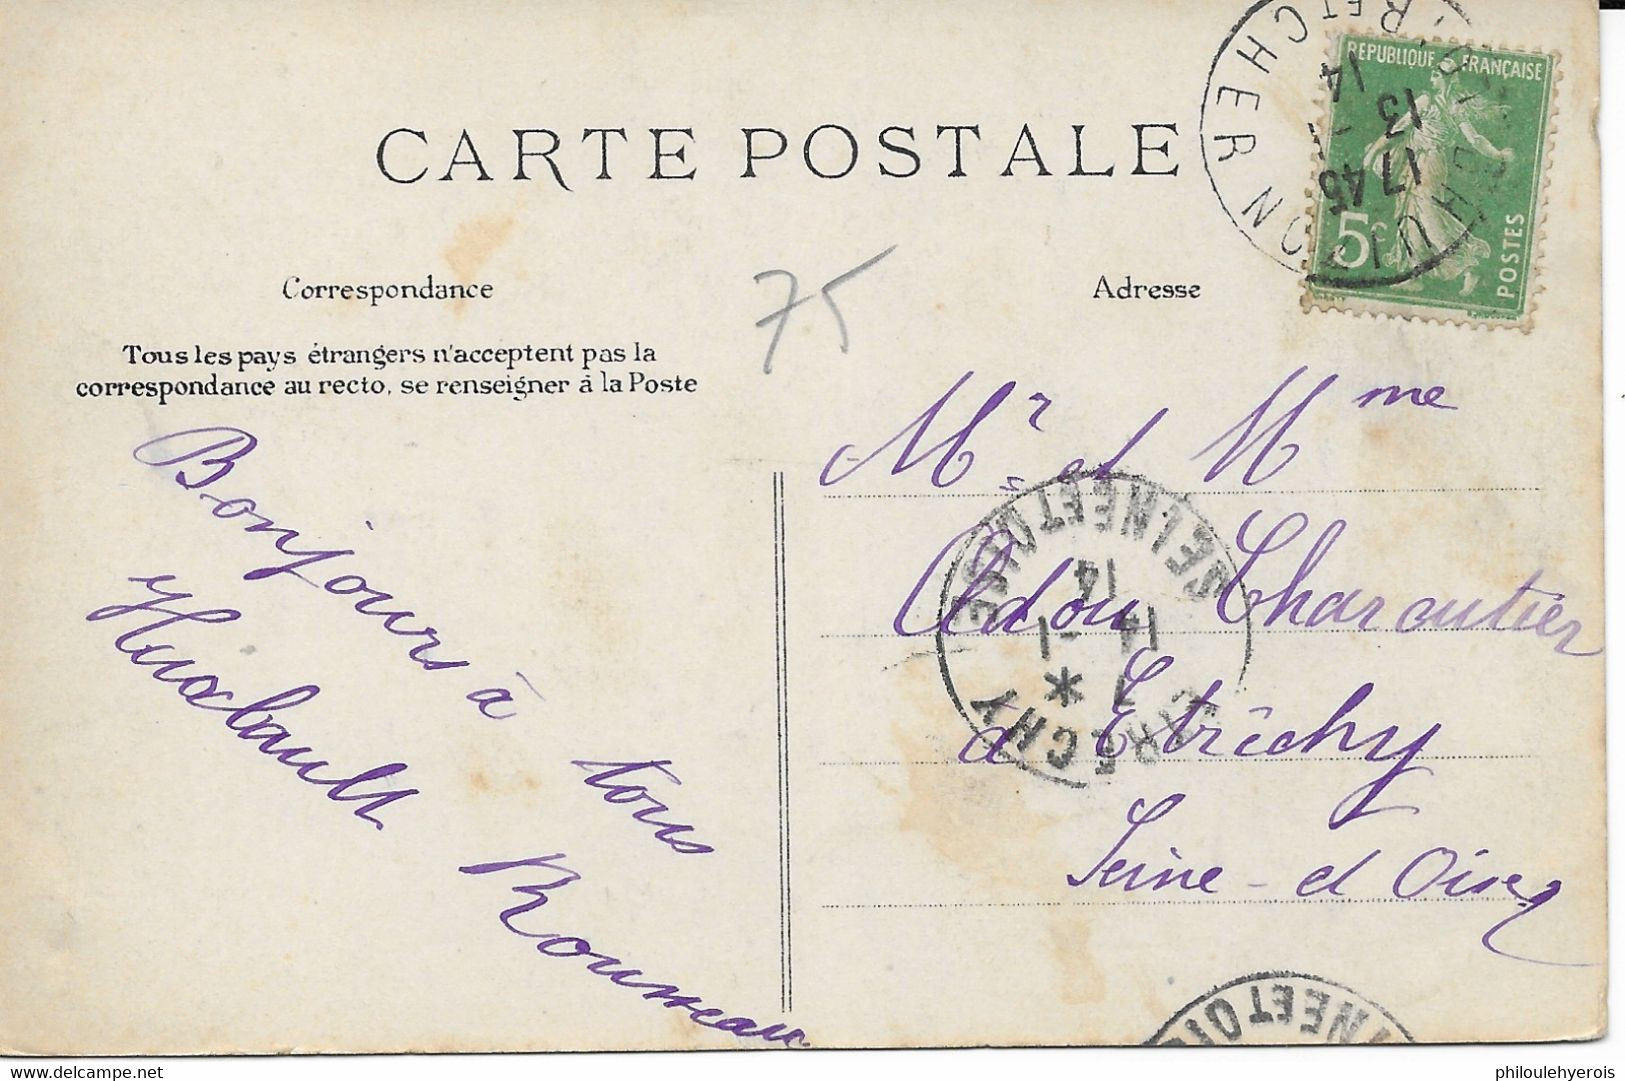 CARTE POSTALE
REPUBLIQUE FRANÇAISE
5c
POSTES
LOIR ET CHER
17 45
13 - 1
14
75
Correspondance
Tous les pays étrangers n'acceptent pas la
correspondance au recto, se renseigner à la Poste
Bonjours à tous
Adresse
Mr et Mme
Adou Charcutier
à Etréchy
Seine - et Oise
ETRECHY
SEINE ET OISE
7 *
14 -1
14
INE ET OI
philoulehyerois